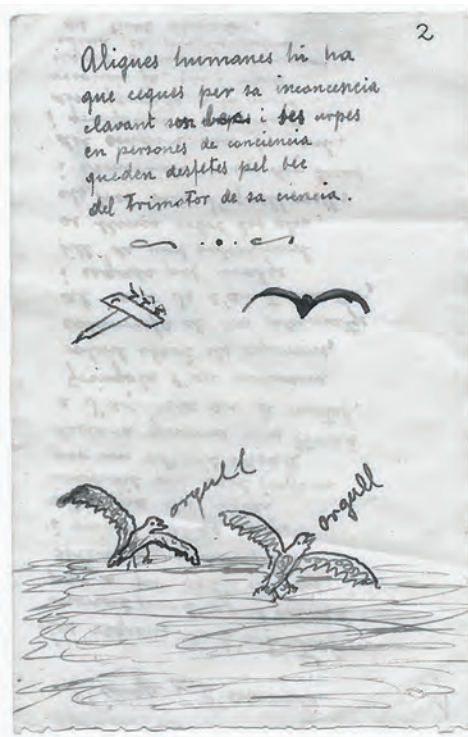 2
Aligues humanes hi ha
que cegues per sa inconcencia
clavant ses becs i ses urpes
en persones de conciencia
queden desfetes pel bec
del Trimotor de sa ciencia.
orgull
orgull